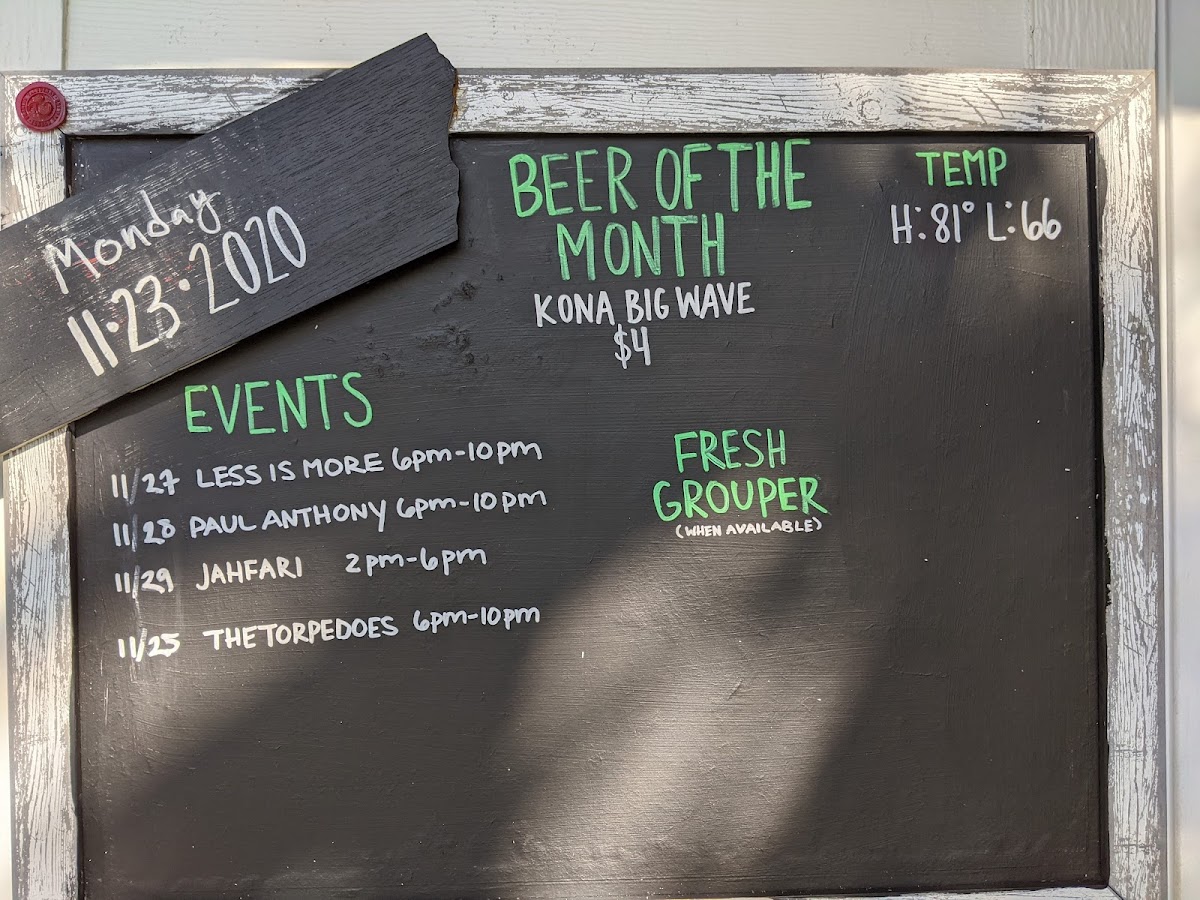 Monday
11·23·2020
BEER OF THE
MONTH
KONA BIG WAVE
$4
TEMP
H:81° L:66
EVENTS
11/27 LESS IS MORE 6pm-10pm
11/28 PAUL ANTHONY 6pm-10pm
11/29 JAHFARI 2pm-6pm
11/25 THE TORPEDOES 6pm-10pm
FRESH
GROUPER
(WHEN AVAILABLE)